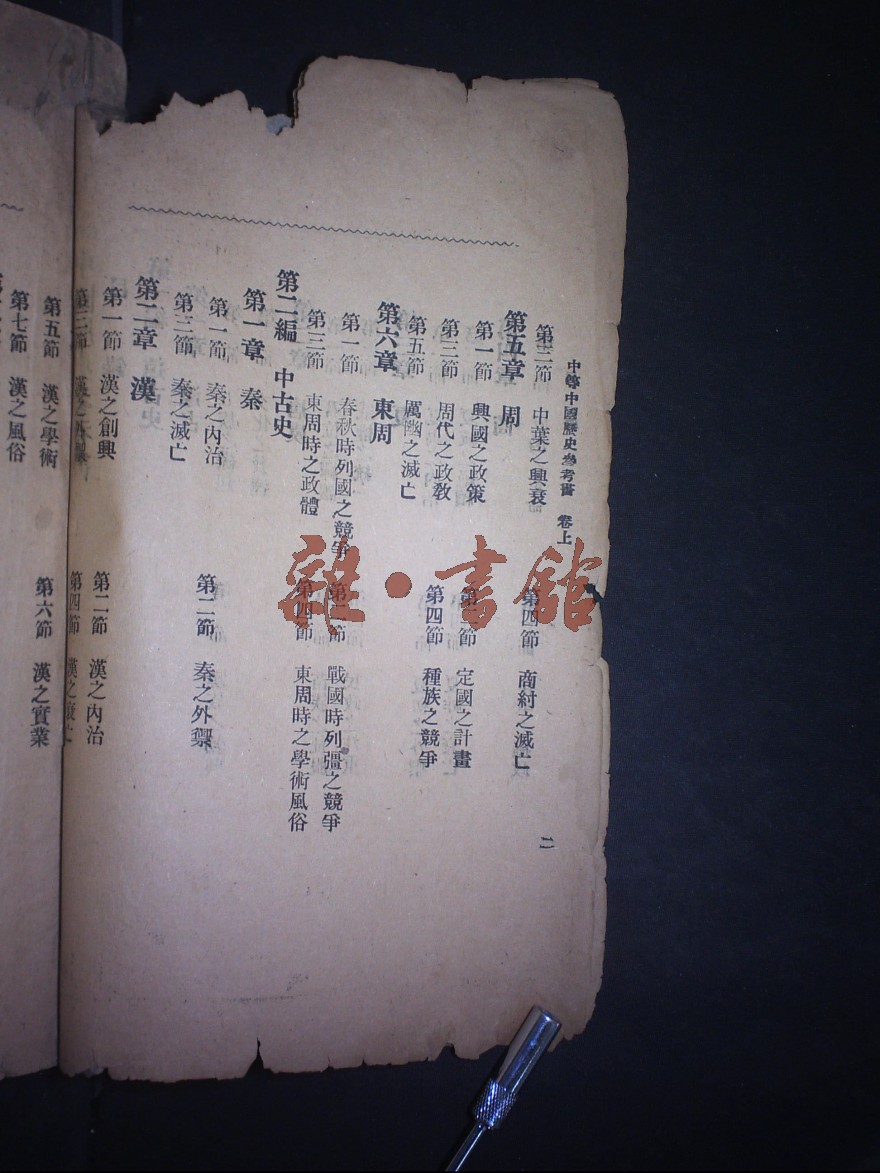 中等中國歷史參考書　卷上
二
第三節　中葉之興衰　第四節　商紂之滅亡
第五章　周
第一節　興國之政策　第二節　定國之計畫
第三節　周代之政教　第四節　種族之競爭
第五節　厲幽之滅亡
第六章　東周
第一節　春秋時列國之競爭　第二節　戰國時列彊之競爭
第三節　東周時之政體　第四節　東周時之學術風俗
第二編　中古史
第一章　秦
第一節　秦之內治　第二節　秦之外禦
第三節　秦之滅亡
第二章　漢
第一節　漢之創興　第二節　漢之內治
第三節　漢之外禦　第四節　漢之衰亡
第五節　漢之學術　第六節　漢之實業
第七節　漢之風俗
雜·書館